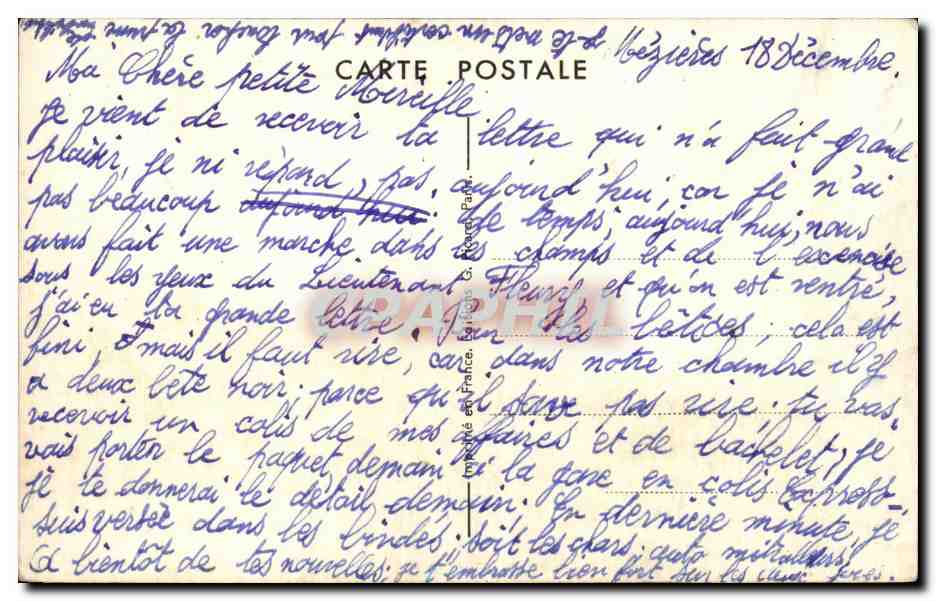 Mézières 18 Décembre.
CARTE POSTALE
Ma Chère petite Mereille
Je vient de recevoir ta lettre qui n'a fait grand
plaisir, je ni répond, pas, aujourd'hui, car je n'ai
pas beaucoup aujourd'hui de temps; aujourd'hui; nous
avons fait une marche dans les champs et de l'exercice
sous les yeux du Lieutenant Fleury, et qu'on est rentré,
j'ai eu ta grande lettre. Pour les bêtises, cela est
fini, mais il faut rire, car dans notre chambre il y
a deux bête noir; parce qu'il save pas rire. tu vas
recevoir un colis de mes affaires et de bachelet, je
vais porter le paquet demain à la gare en colis Express
je te donnerai le détail demain. En dernière minute, je
suis versée dans les bindés. soit les chars, auto
A bientôt de tes nouvelles; je t'embrasse bien fort sur les joues.
Imprimé en France. Editions G. Picard, Paris.
CPAPHIL